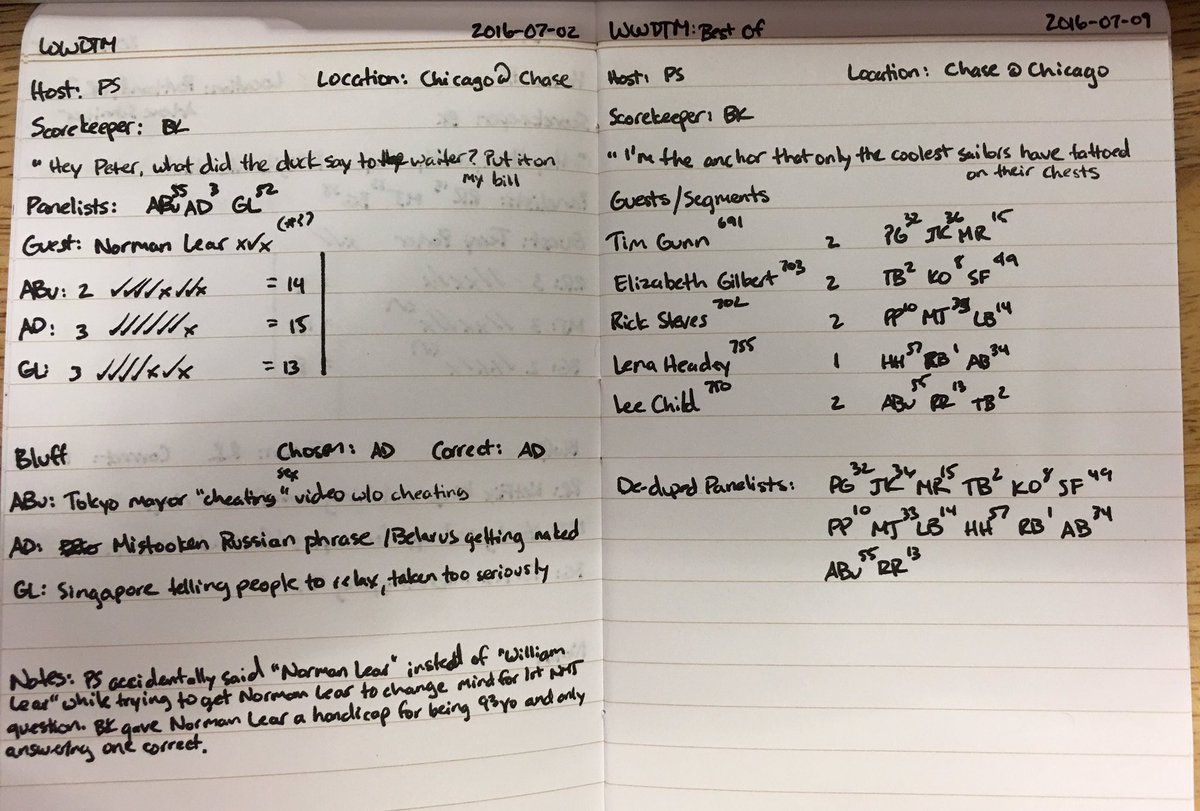 WWDTM 2016-07-02
Host: PS Location: Chicago @ Chase
Scorekeeper: BK
"Hey Peter, what did the duck say to the waiter? Put it on
my bill
Panelists: ABu 55 AD 3 GL 52
Guest: Norman Lear x√x (*3?)
ABu: 2 √√√x√√x = 14
AD: 3 √√√√√√x = 15
GL: 3 √√√√x√x = 13
Bluff Chosen: AD Correct: AD
sex
ABu: Tokyo mayor "cheating" video w/o cheating
AD: Mistooken Russian phrase / Belarus getting naked
GL: Singapore telling people to relax, taken too seriously
Notes: PS accidentally said "Norman Lear" instead of "William
Lear" while trying to get Norman Lear to change mind for 1st NMJ
question. BK gave Norman Lear a handicap for being 93yo and only
answering one correct.
WWDTM: Best Of 2016-07-09
Host: PS Location: Chase @ Chicago
Scorekeeper: BK
"I'm the anchor that only the coolest sailors have tattoed
on their chests
Guests/Segments
Tim Gunn 691 2 PG 32 JK 36 MR 15
Elizabeth Gilbert 703 2 TB 2 KO 8 SF 49
Rick Steves 702 2 PP 10 MJ 33 LB 14
Lena Headey 755 1 HH 57 RB 1 AB 34
Lee Child 750 2 ABu 55 RR 13 TB 2
De-duped Panelists: PG 32 JK 36 MR 15 TB 2 KO 8 SF 49
PP 10 MJ 33 LB 14 HH 57 RB 1 AB 34
ABu 55 RR 13